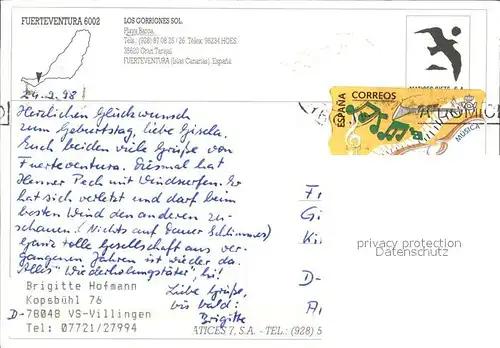 FUERTEVENTURA 6002
LOS GORRIONES SOL.
Playa Barca.
Tels.: (928) 87 08 25 / 26 Télex: 96234 HOES.
35620 Gran Tarajal
FUERTEVENTURA (Islas Canarias). España
24.2.98
ESPAÑA
CORREOS
MUSICA
Herzlichen Glückwunsch
zum Geburtstag, liebe Gisela.
Euch beiden viele Grüße von
Fuerteventura. Diesmal hat
Henner Pech mit Windsurfen. Er
hat sich verletzt und darf beim
besten Wind den anderen zu-
schauen! (Nichts auf Dauer Schlimmes)
Ganz tolle Gesellschaft aus ver-
gangenen Jahren ist wieder da.
Alles "Wiederholungstäter", hi!
Liebe Grüße,
bis bald:
Brigitte
Brigitte Hofmann
Kopsbühl 76
D-78048 VS-Villingen
Tel: 07721/27994
privacy protection
by oldthing.com
D-
ATICES 7, S.A. - TEL.: (928) 5